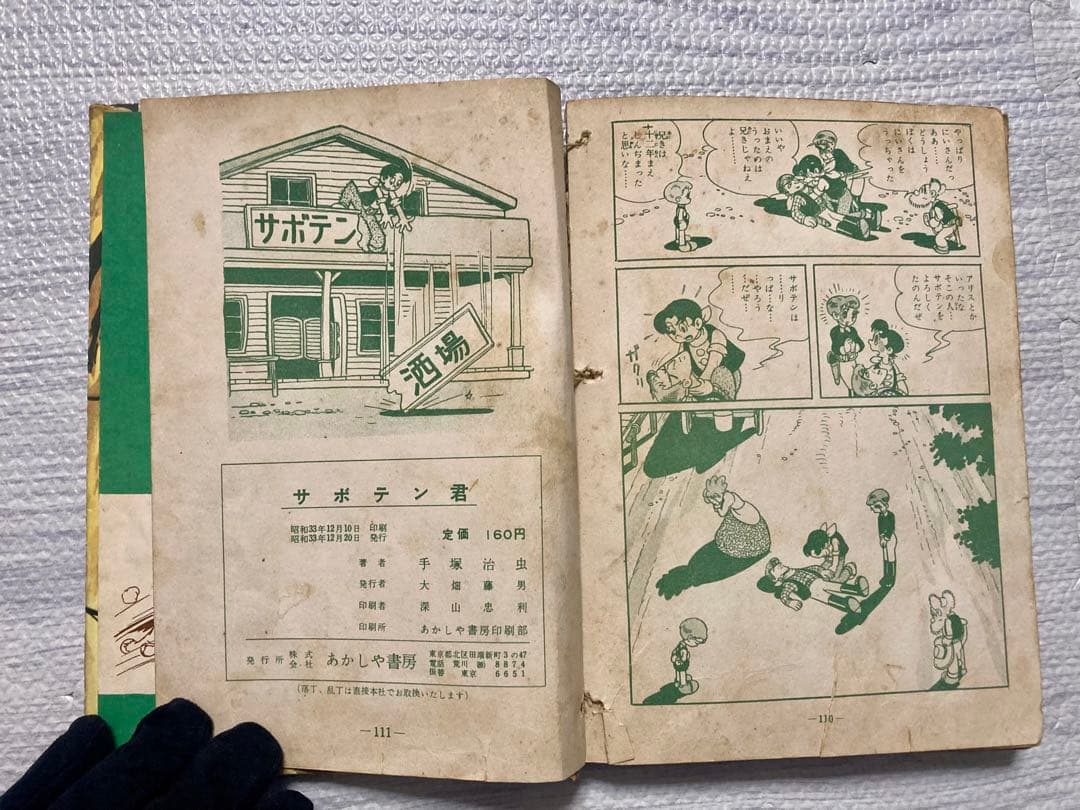 やっぱり
にいさんだっ
ああ……
どうしよう
ぼくは
にいさんを
うっちゃった
いいや
おまえの
うったのは
兄きじゃねえ
よ………
兄きは
十二年まえ
しんぢまった
と思いな……
アリスとか
いったな
そこの人…
サボテンを
よろしく
たのんだぜ
サボテンは
……り
っぱ…な…
…やろう
……だぜ…
ガクリ
—110—
サボテン
酒場
サボテン君
昭和33年12月10日 印刷
昭和33年12月20日 発行
定価 160円
著者 手塚治虫
発行者 大畑藤男
印刷者 深山忠利
印刷所 あかしや書房印刷部
発行所 株式会社 あかしや書房
東京都北区田端新町3の47
電話 荒川 ㈹ 8874
振替 東京 6651
(落丁、乱丁は直接本社でお取換いたします)
—111—